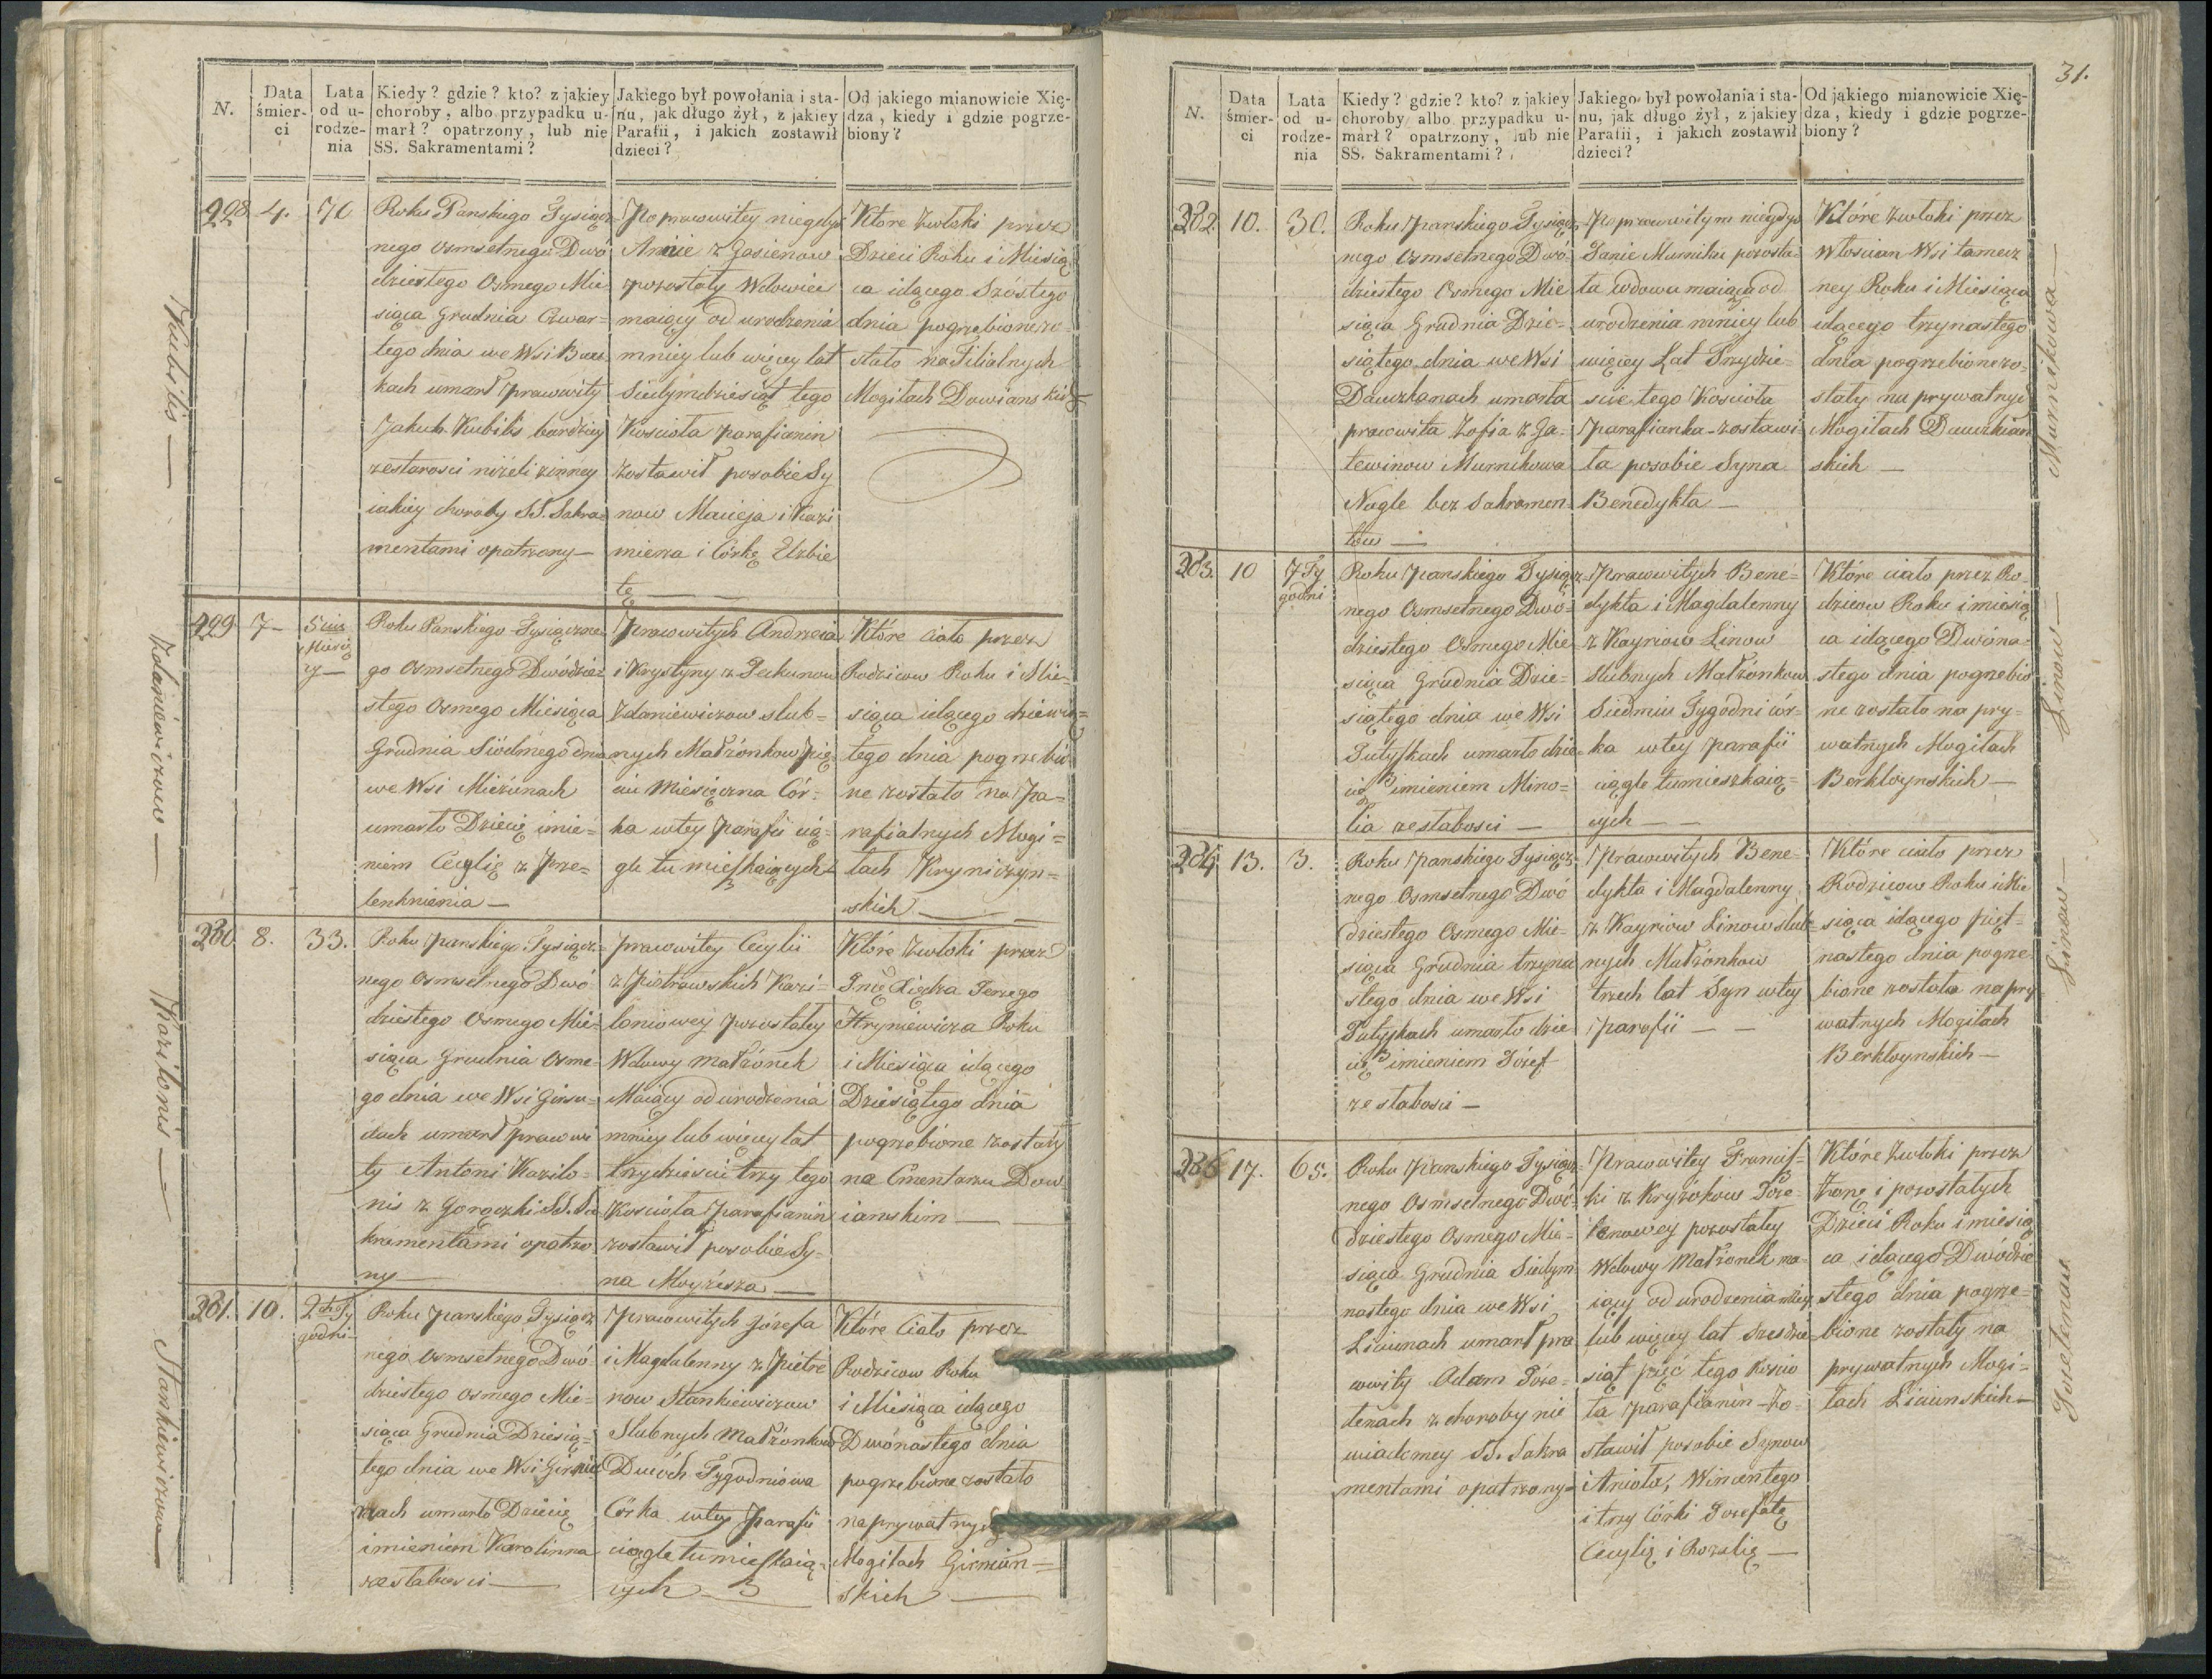 N.
Data śmierci
Lata od urodzenia
Kiedy? gdzie? kto? z jakiey choroby, albo przypadku umarł? opatrzony, lub nie SS. Sakramentami?
Jakiego był powołania i stanu, jak długo żył, z jakiey Parafii, i jakich zostawił dzieci?
Od jakiego mianowicie Xiędza, kiedy i gdzie pogrzebiony?
Kubilis —
228
4.
70
Roku Panskiego Tysiącz-
nego Osmsetnego Dwó
dziestego Osmego Mie
siąca Grudnia Czwar-
tego dnia we Wsi
kach umarł prawowity
Jakub Kubilis bardziey
zestarosci niżeli zinney
iakiey choroby SS. Sakra-
mentami opatrzony —
Po prawowitey niegdyś
Annie z Gasienow
pozostały Wdowiec
maiący od urodzenia
mniey lub więcey lat
Siedymdziesiąt tego
Kosciola Parafianin
zostawił posobie Sy
now Macieja i Kazi
mierza i Córkę Elzbie
tę —
Ktore Zwłoki przez
Dzieci Roku i Miesią
ca idącego Szóstego
dnia pogrzebione zo-
stało na Filialnych
Mogiłach Dowianskich
Zdaniewiczow —
229
7 —
5 ciu
Miesię
cy —
Roku Panskiego Tysiączne
go Osmsetnego Dwódzie-
stego Osmego Miesiąca
Grudnia Siódmego dnia
we Wsi Mieżunach
umarło Dziecię imie-
niem Cecylię z Prze-
lenknienia —
Prawowitych Andrzeia
i Krystyny z Peckunow
Zdaniewiczow slub-
nych Małżonkow Pię
ciu Miesięczna Cór-
ka wtey Parafii cią-
gle tu mieszkaiących
Które ciało przez
Rodzicow Roku i Mie-
siąca idącego dziewią-
tego dnia pogrzebio
ne zostało na Pa-
rafialnych Mogi-
łach Kryniczyn-
skich —
Kazilonis —
230
8.
33.
Roku Panskiego Tysiącz-
nego Osmsetnego Dwó
dziestego Osmego Mie-
siąca Grudnia Osme-
go dnia we Wsi Girsu-
dach umarł prawowi
ty Antoni Kazilo-
nis z Gorączki SS. Sa
kramentami opatrzo
ny —
Prawowitey Cecylii
z Piotrowskich Kazi-
loniowey pozostałey
Wdowy małżonek
Maiący od urodzenia
mniey lub więcey lat
trzydziescitrzy tego
Kosciola Parafianin
zostawił posobie Sy-
na Moyżesza —
Które Zwłoki przez
Jmę Xiędza Jerzego
Hryniewicza Roku
i Miesiąca idącego
Dziesiątego dnia
pogrzebione zostały
na Cmentarzu Dow
ianskim —
Stankiewiczow —
231.
10.
2ch Ty
godni
Roku Panskiego Tysiącz
nego Osmsetnego Dwó
dziestego osmego Mie-
siąca Grudnia Dziesią-
tego dnia we Wsi Girniu
nach umarło Dziecię
imieniem Karolinna
zesłabosci —
Prawowitych Józefa
i Magdalenny z Pietre
now Stankiewiczow
Slubnych Małżonkow
Dwóch Tygodniowa
Córka wtey Parafii
ciągle tumieszkaią-
cych —
Które Ciało przez
Rodzicow Roku
i Miesiąca idącego
Dwónastego dnia
pogrzebione zostało
na prywatnych
Mogiłach Girniun-
skich —
31.
N.
Data śmierci
Lata od urodzenia
Kiedy? gdzie? kto? z jakiey choroby albo przypadku umarł? opatrzony, lub nie SS. Sakramentami?
Jakiego był powołania i stanu, jak długo żył, z jakiey Parafii, i jakich zostawił dzieci?
Od jakiego mianowicie Xiędza, kiedy i gdzie pogrzebiony?
232.
10.
30.
Roku Panskiego Tysiącz
nego Osmsetnego Dwó-
dziestego Osmego Mie
siąca Grudnia Dzie-
siątego dnia we Wsi
Dauczkanach umarła
prawowita Zofia z Ga-
tewinow Murnikowa
Nagle bez Sakramen
tow —
Po prawowitym niegdyś
Janie Murniku pozosta-
ła wdowa maiąca od
urodzenia mniey lub
więcey Lat Trzydzie-
scie tego Kosciola
Parafianka zostawi
ła posobie Syna
Benedykta —
Które Zwłoki przez
Włoscian Wsi tamecz
ney Roku i Miesiąca
idącego trzynastego
dnia pogrzebione zo-
stały na prywatnych
Mogiłach Dauczkian
skich —
Murnikowa —
233.
10
7 Ty
godni
Roku Panskiego Tysiącz-
nego Osmsetnego Dwó-
dziestego Osmego Mie-
siąca Grudnia Dzie-
siątego dnia we Wsi
Putyszkach umarło dzie-
cię imieniem Mino-
lia zesłabosci —
Prawowitych Bene-
dykta i Magdalenny
z Kayriow Linow
Slubnych Małżonkow
Siedmiu Tygodni cór-
ka wtey parafii
ciągle tumieszkaią-
cych —
Które ciało przez Ro-
dzicow Roku i miesią
ca idącego Dwóna-
stego dnia pogrzebio
ne zostało na pry-
watnych Mogiłach
Berkłoynskich —
Linow —
234
13.
3.
Roku Panskiego Tysiącz-
nego Osmsetnego Dwó
dziestego Osmego Mie-
siąca Grudnia trzyna
stego dnia we Wsi
Putyszkach umarło dzie
cię imieniem Józef
ze słabosci —
Prawowitych Bene-
dykta i Magdalenny
z Kayriow Linow slub-
nych Małżonkow
trzech lat Syn wtey
parafii —
Które ciało przez
Rodzicow Roku i Mie
siąca idącego pięt-
nastego dnia pogrze
bione zostało na pry-
watnych Mogiłach
Berkłoynskich —
Linow —
235
17.
65.
Roku Panskiego Tysiącz-
nego Osmsetnego Dwó-
dziestego Osmego Mie-
siąca Grudnia Siedym
nastego dnia we Wsi
Liciunach umarł pra
wowity Adam
z choroby nie
wiadomey SS. Sakra
mentami opatrzony —
Prawowitey Francisz-
ki z Kryżokow
pozostałey
Wdowy Małżonek ma
iący od urodzenia mniey
lub więcey lat szesdzie-
siąt pięć tego Koscio
ła parafianin zo-
stawił posobie Synow
Anioła, Wincentego
i trzy Córki Jozefatę
Cecylię i Rozalię —
Które Zwłoki przez
Żonę i pozostałych
Dzieci Roku i miesią
ca idącego Dwódzie
stego dnia pogrze-
bione zostały na
prywatnych Mogi-
łach Liciunskich —